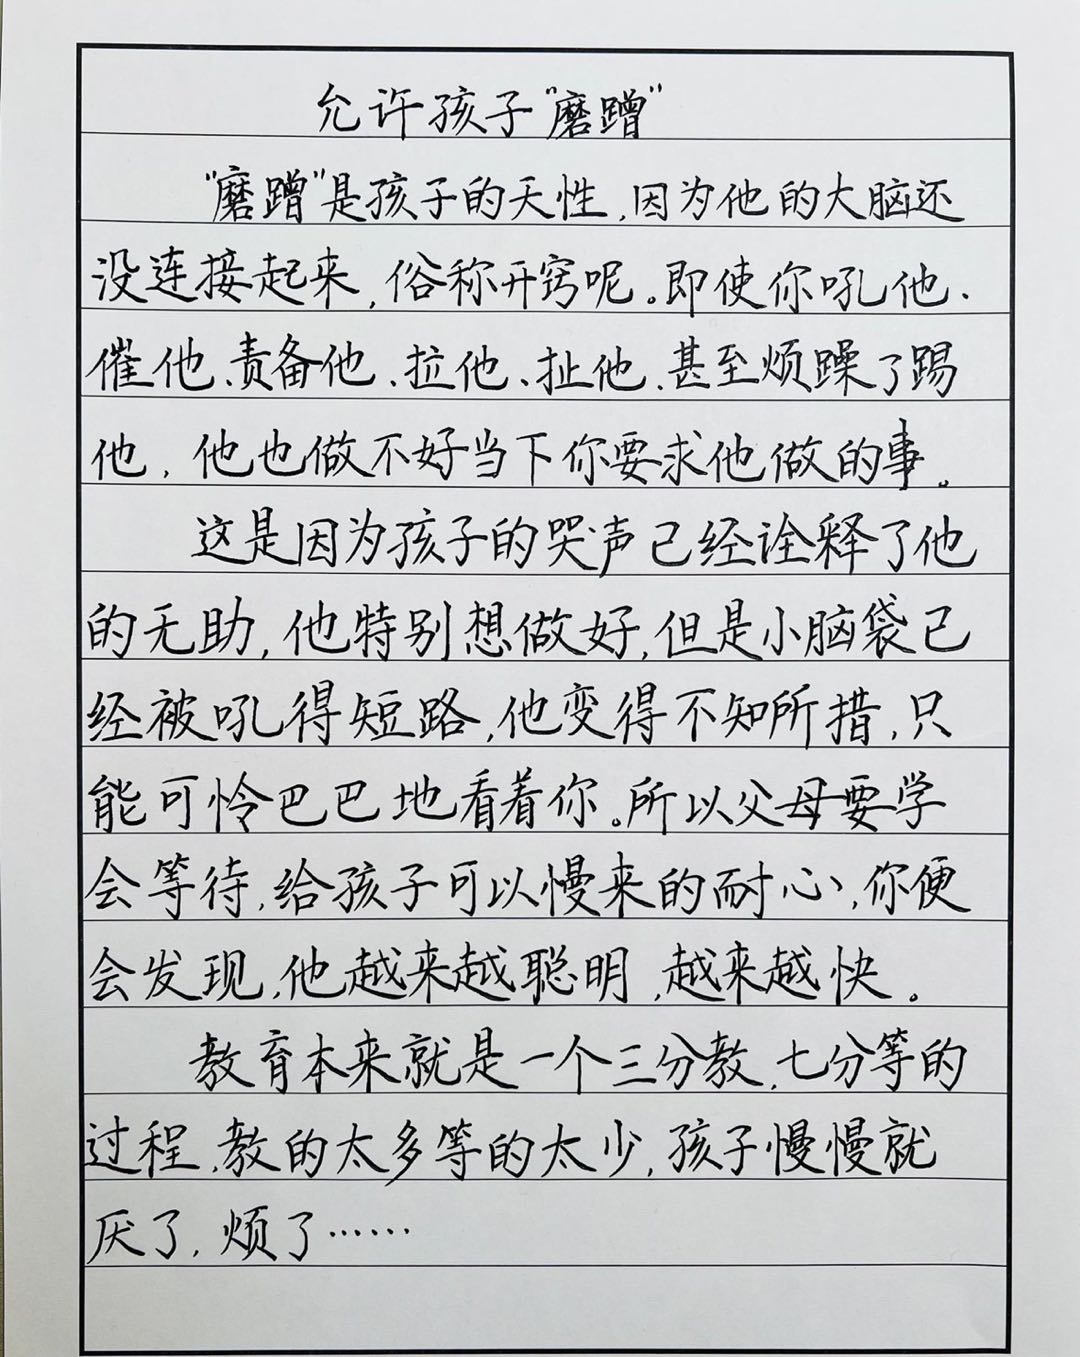 允许孩子"磨蹭"
"磨蹭"是孩子的天性,因为他的大脑还
没连接起来,俗称开窍呢。即使你吼他、
催他、责备他、拉他、扯他、甚至烦躁了踢
他,他也做不好当下你要求他做的事。
这是因为孩子的哭声已经诠释了他
的无助,他特别想做好,但是小脑袋已
经被吼得短路,他变得不知所措,只
能可怜巴巴地看着你。所以父母要学
会等待,给孩子可以慢来的耐心,你便
会发现,他越来越聪明,越来越快。
教育本来就是一个三分教,七分等的
过程,教的太多等的太少,孩子慢慢就
厌了,烦了……